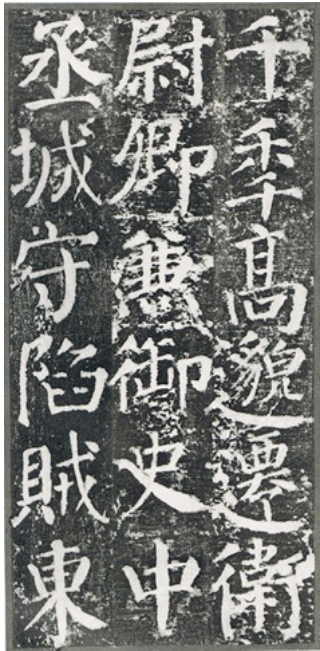 千秊髙邈遷衛
尉卿兼御史中
丞城守陷賊東